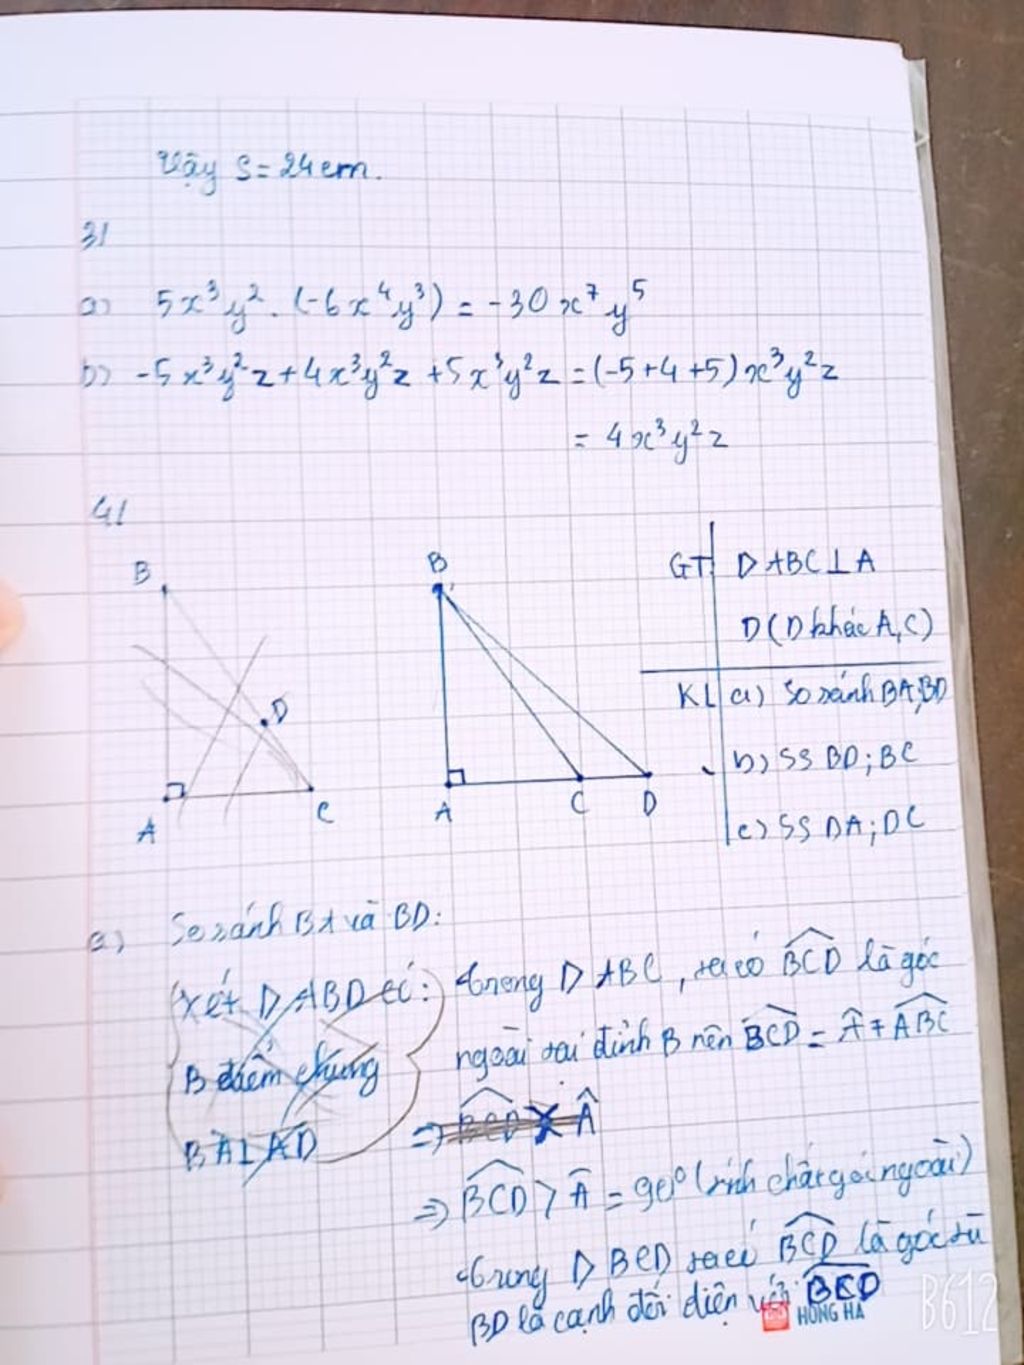 Vậy S = 24 cm.
3/
a) 5x³y² . (-6x⁴y³) = -30x⁷y⁵
b) -5x³y²z + 4x³y²z + 5x³y²z = (-5+4+5)x³y²z
= 4x³y²z
4/
B D A C
B A C D
GT D ABC ⊥ A
D (D khác A, C)
KL a) So sánh BA; BD
b) SS BD; BC
c) SS DA; DC
a) So sánh BA và BD:
Xét D ABD có:
B điểm chung
BA ⊥ AD
trong D ABC, ta có BCD là góc
ngoài tại đỉnh B nên BCD = Â + ABC
=> BCD Â
=> BCD > Â = 90° (tính chất gói ngoài)
trong D BCD ta có BCD là góc tù
BD là cạnh đối diện với BCD
HONG HA
B612